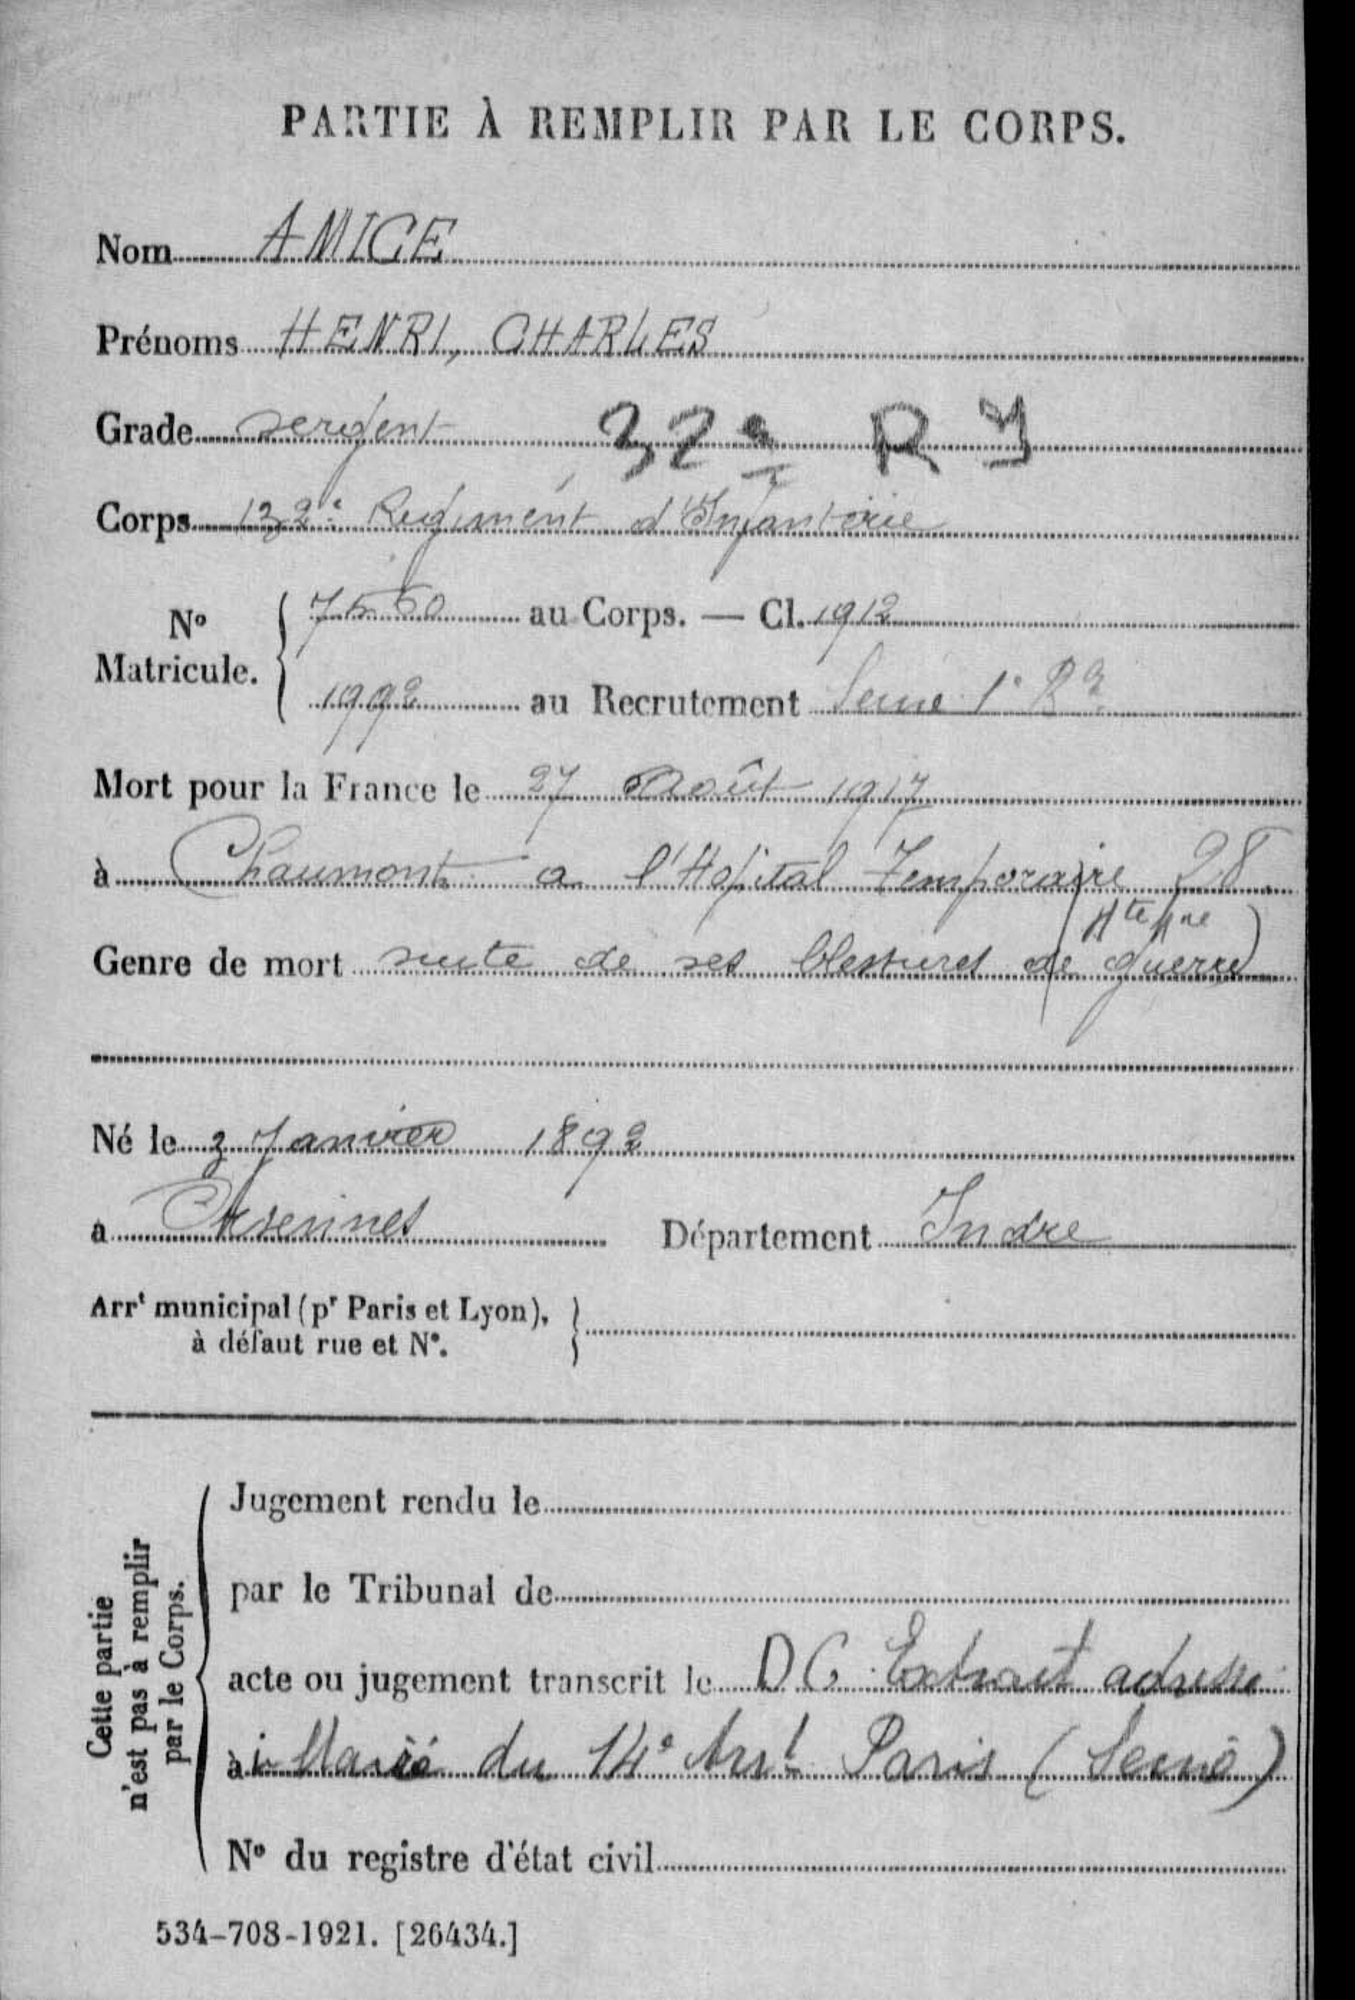 PARTIE À REMPLIR PAR LE CORPS.
Nom AMICE
Prénoms HENRI, CHARLES
Grade sergent 32e R I
Corps 132e Regiment d'Infanterie
No Matricule. 7550 au Corps. — Cl. 1912
1992 au Recrutement Seine 1e
Mort pour la France le 27 Août 1917
à Chaumont a l'Hopital Temporaire 28
(Hte Mne)
Genre de mort suite de ses blessures de guerre
Né le 3 Janvier 1892
à Orsennes Département Indre
Arrt municipal (pr Paris et Lyon),
à défaut rue et No.
Cette partie
n'est pas à remplir
par le Corps.
Jugement rendu le
par le Tribunal de
acte ou jugement transcrit le D C Extrait adressé
à Mairie du 14e Arrt Paris (Seine)
No du registre d'état civil
534-708-1921. [26434.]